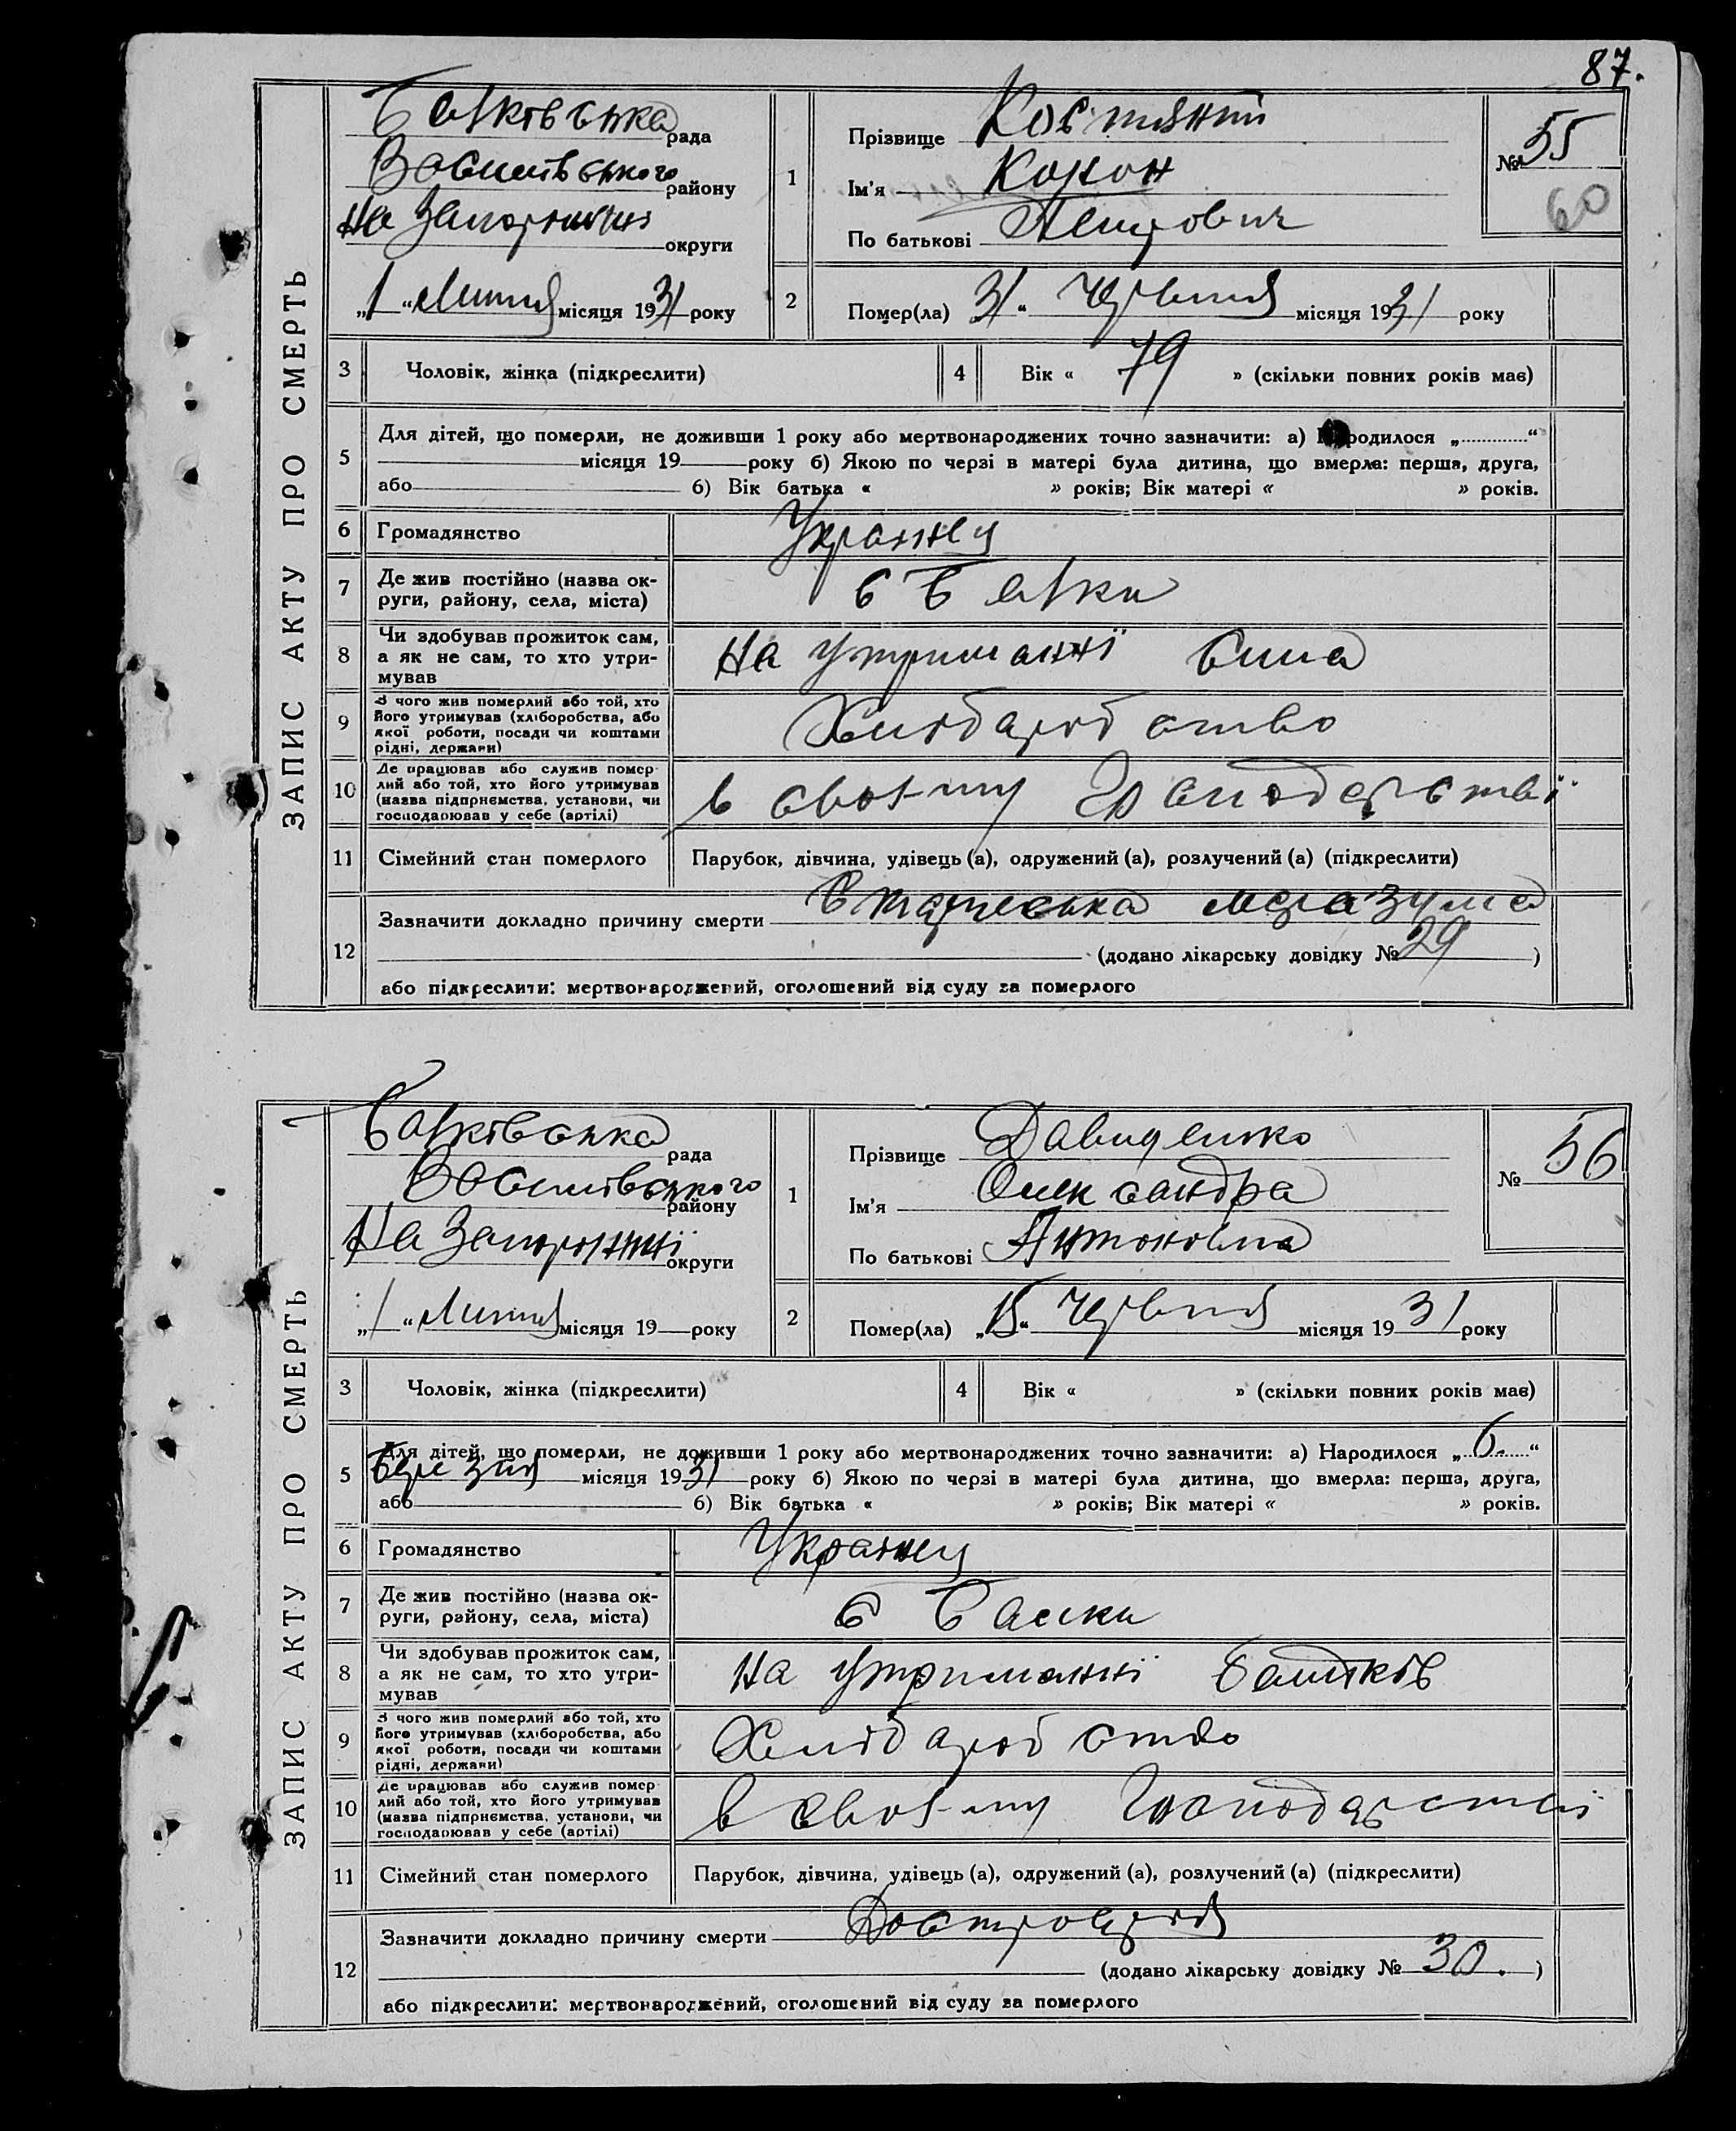 87.
ЗАПИС АКТУ ПРО СМЕРТЬ
Балківська рада
Василівського району
На Запоріжжі округи
„1“ Липня місяця 1931 року
1
Прізвище
Ім'я Конон
По батькові Петрович
№ 55
60
2
Помер(ла) „31“ Червня місяця 1931 року
3 Чоловік, жінка (підкреслити)
4 Вік « 79 » (скільки повних років має)
5 Для дітей, що померли, не доживши 1 року або мертвонароджених точно зазначити: а) Народилося „ “
місяця 19 року б) Якою по черзі в матері була дитина, що вмерла: перша, друга,
або б) Вік батька « » років; Вік матері « » років.
6 Громадянство Украинец
7 Де жив постійно (назва ок-
руги, району, села, міста) с Балки
8 Чи здобував прожиток сам,
а як не сам, то хто утри-
мував На утриманні сина
9 З чого жив померлий або той, хто
його утримував (хліборобства, або
якої роботи, посади чи коштами
рідні, держави) Хліборобство
10 Де працював або служив помер-
лий або той, хто його утримував
(назва підприємства, установи, чи
господарював у себе (артілі) в своєму Господарстві
11 Сімейний стан померлого Парубок, дівчина, удівець (а), одружений (а), розлучений (а) (підкреслити)
12 Зазначити докладно причину смерти Старческа маразума
(додано лікарську довідку № 29 )
або підкреслити: мертвонароджений, оголошений від суду за померлого
ЗАПИС АКТУ ПРО СМЕРТЬ
Балківська рада
Василівського району
На Запоріжжі округи
„1“ Липня місяця 19 року
1
Прізвище Давиденко
Ім'я Олександра
По батькові Антоновна
№ 56
2
Помер(ла) „15“ Червня місяця 1931 року
3 Чоловік, жінка (підкреслити)
4 Вік « » (скільки повних років має)
5 Для дітей, що померли, не доживши 1 року або мертвонароджених точно зазначити: а) Народилося „6.“
Березня місяця 1931 року б) Якою по черзі в матері була дитина, що вмерла: перша, друга,
або б) Вік батька « » років; Вік матері « » років.
6 Громадянство Украинец
7 Де жив постійно (назва ок-
руги, району, села, міста) с Балки
8 Чи здобував прожиток сам,
а як не сам, то хто утри-
мував На утриманні батьків
9 З чого жив померлий або той, хто
його утримував (хліборобства, або
якої роботи, посади чи коштами
рідні, держави) Хліборобство
10 Де працював або служив помер-
лий або той, хто його утримував
(назва підприємства, установи, чи
господарював у себе (артілі) в своєму Господарстві
11 Сімейний стан померлого Парубок, дівчина, удівець (а), одружений (а), розлучений (а) (підкреслити)
12 Зазначити докладно причину смерти
(додано лікарську довідку № 30. )
або підкреслити: мертвонароджений, оголошений від суду за померлого